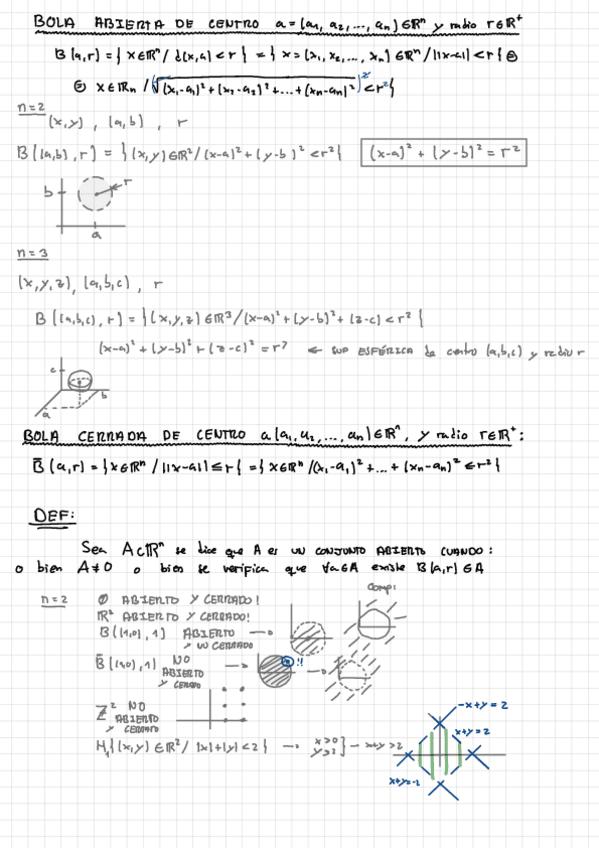 BOLA ABIERTA DE CENTRO a=(a₁, a₂, ..., aₙ)∈ℝⁿ y radio r∈ℝ⁺
B(a,r) = { x∈ℝⁿ / d(x,a) < r } = { x=(x₁, x₂, ..., xₙ)∈ℝⁿ / ||x-a|| < r { ⊜
⊜ x∈ℝₙ / (√(x₁-a₁)²+(x₂-a₂)²+...+(xₙ-aₙ)²)² < r² }
n=2
(x,y), (a,b), r
B((a,b), r) = { (x,y)∈ℝ² / (x-a)²+(y-b)² < r² } (x-a)² + (y-b)² = r²
b r
a
n=3
(x,y,z), (a,b,c), r
B((a,b,c), r) = { (x,y,z)∈ℝ³ / (x-a)²+(y-b)²+(z-c) < r² {
(x-a)² + (y-b)² + (z-c)² = r² ← SUP ESFÉRICA de centro (a,b,c) y radio r
c
b
a
BOLA CERRADA DE CENTRO a(a₁, a₂, ..., aₙ)∈ℝⁿ, y radio r∈ℝ⁺:
B̄(a,r) = { x∈ℝⁿ / ||x-a|| ≤ r { = { x∈ℝⁿ / (x₁-a₁)²+...+(xₙ-aₙ)² ≤ r² }
DEF:
Sea A⊂ℝⁿ se dice que A es UN CONJUNTO ABIERTO CUANDO:
o bien A≠0 o bien se verifica que ∀a∈A existe B(a,r)∈A
n=2 Ø ABIERTO Y CERRADO! comp:
ℝ² ABIERTO Y CERRADO!
B((1,0),1) ABIERTO →
Y NO CERRADO
B̄((1,0),1) NO → !! →
ABIERTO
Y CERRADO
ℤ² NO
ABIERTO
Y CERRADO
H₁{(x,y)∈ℝ² / |x|+|y|<2} → x>0 y>2 } - x+y>2
-x+y=2
x+y=2
x+y=-2